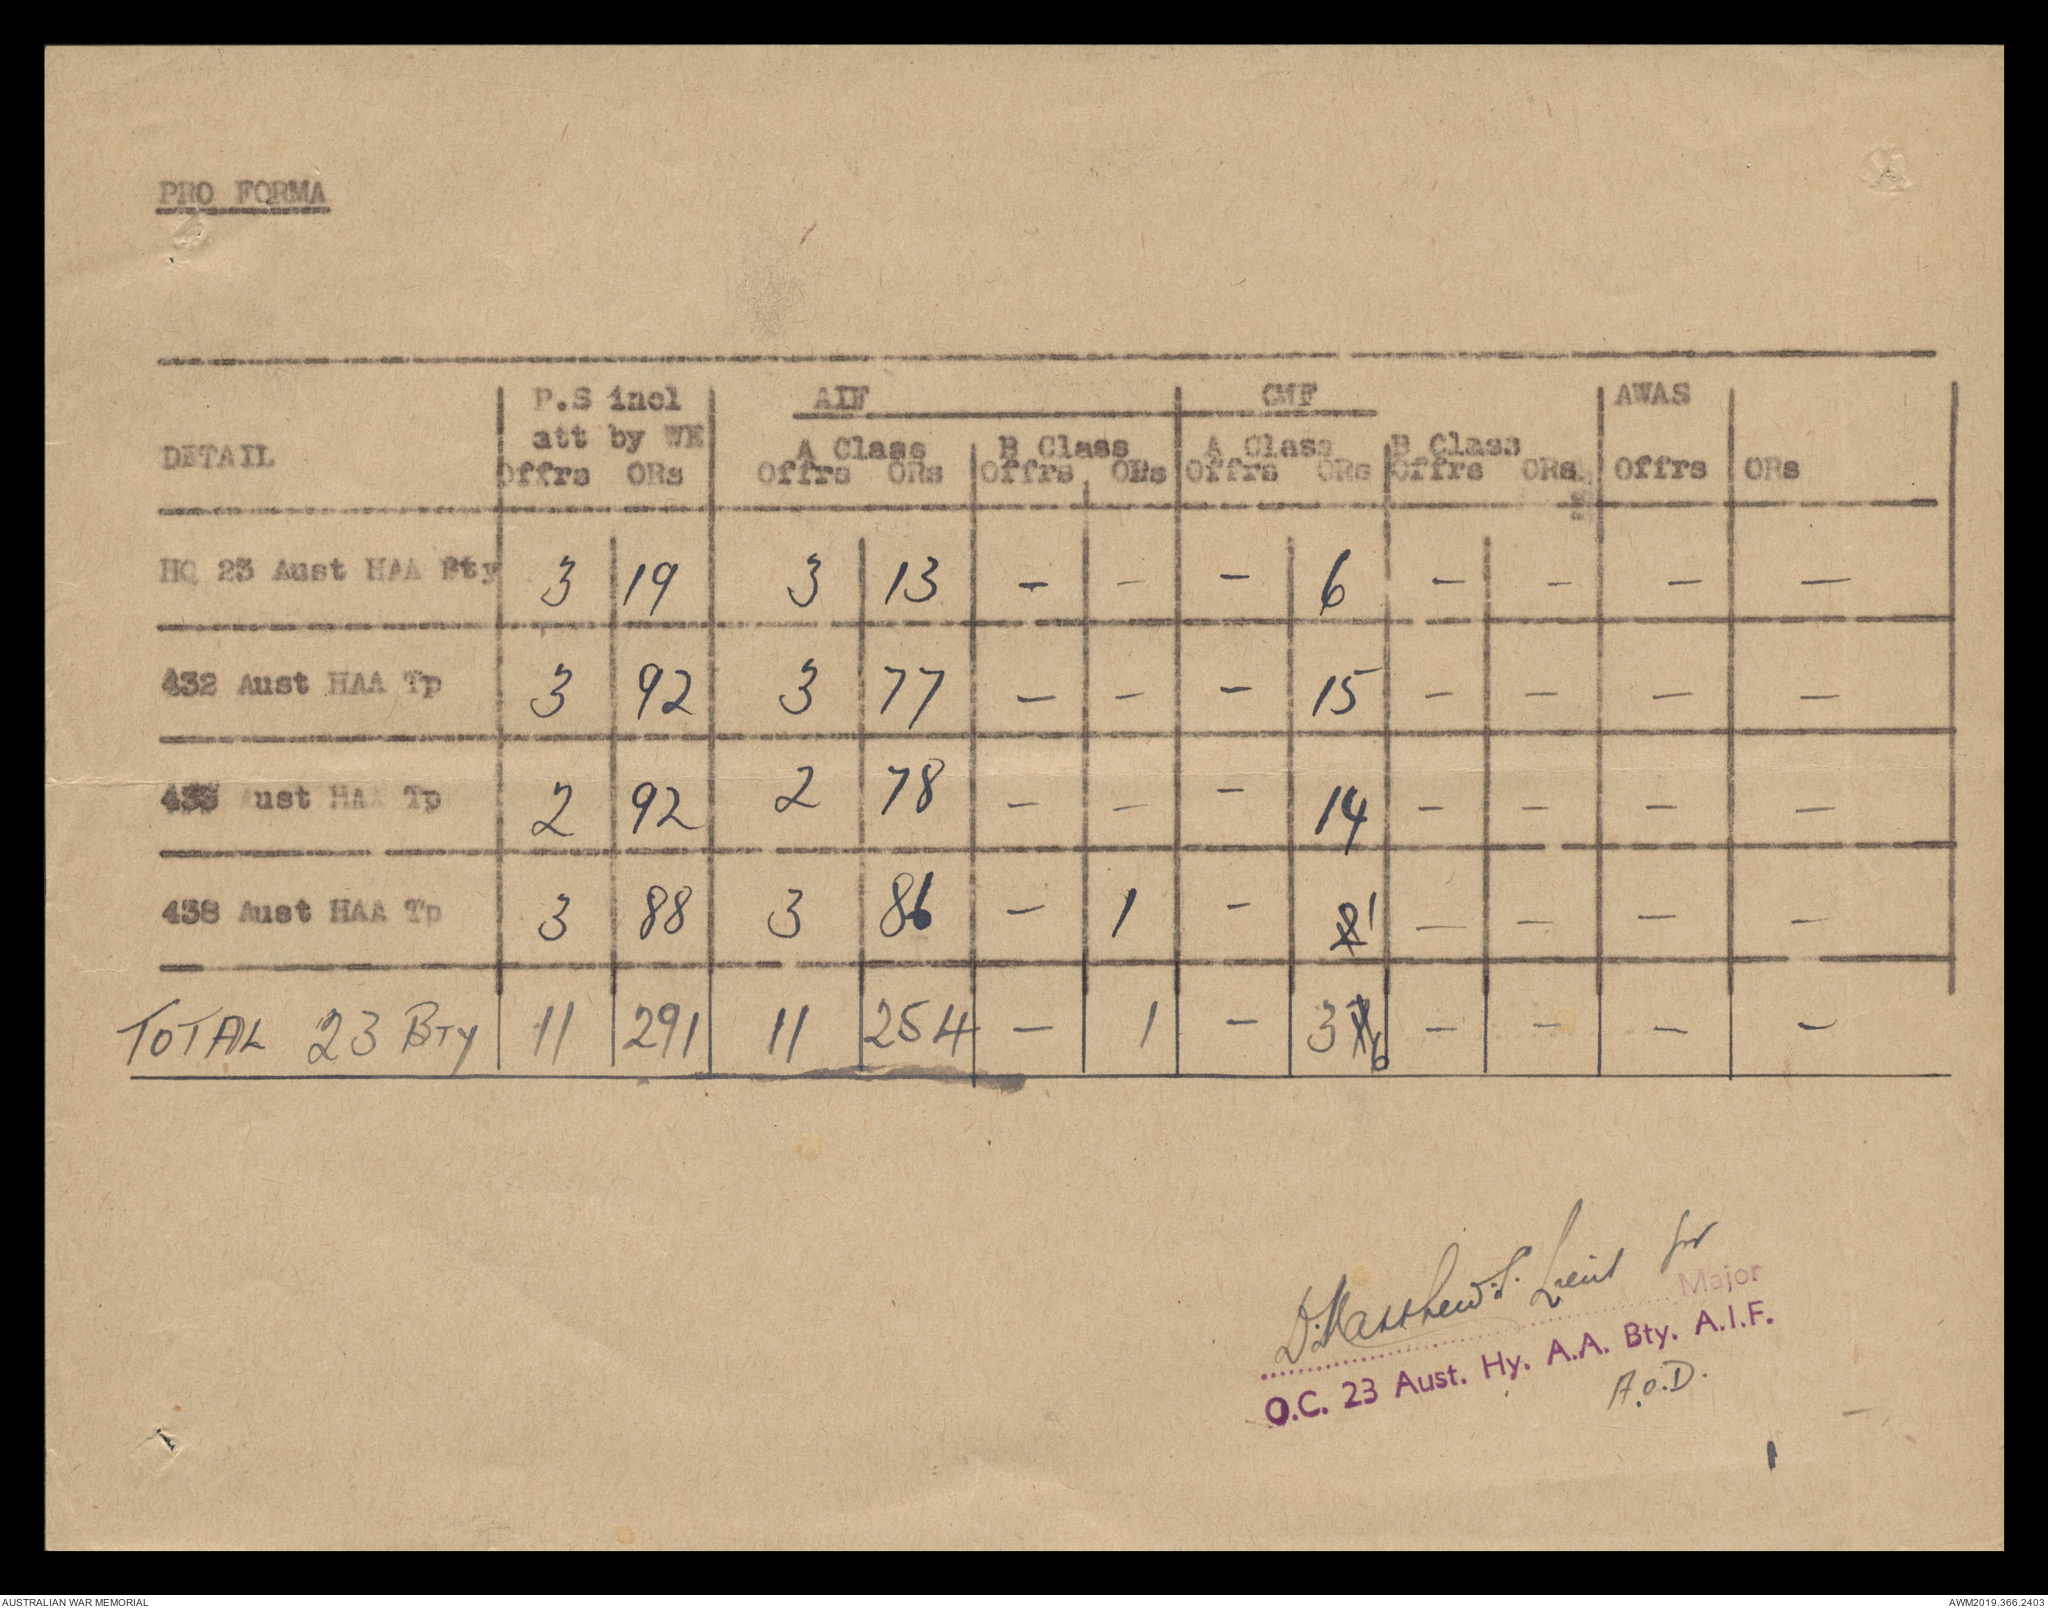 PRO FORMA
P.S incl AIF CMF AWAS
att by WE
DETAIL A Class B Class A Class B Class
Offrs ORs Offrs ORs Offrs ORs Offrs ORs Offrs ORs Offrs ORs
HQ 23 Aust HAA Bty 3 19 3 13 - - - 6 - - - -
432 Aust HAA Tp 3 92 3 77 - - - 15 - - - -
433 Aust HAA Tp 2 92 2 78 - - - 14 - - - -
438 Aust HAA Tp 3 88 3 86 - 1 - 1 - - - -
TOTAL 23 BTY 11 291 11 254 - 1 - 36 - - - -
D. Matthews. Lieut for
Major
O.C. 23 Aust. Hy. A.A. Bty. A.I.F.
A.O.D.
AUSTRALIAN WAR MEMORIAL AWM2019.366.2403